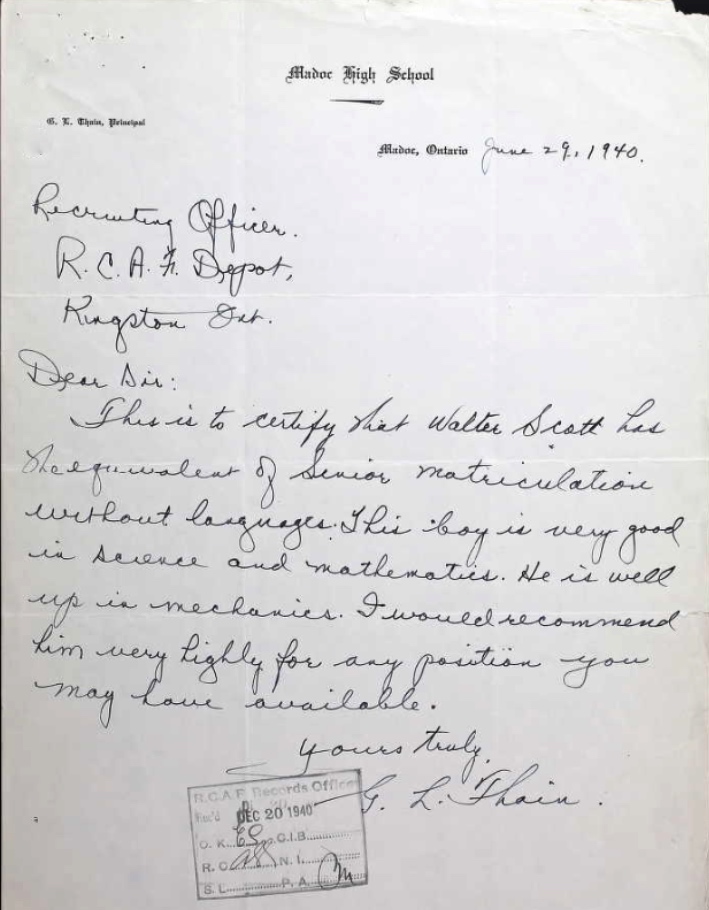 Madoc High School
G. L. Thain, Principal
Madoc, Ontario June 29, 1940.
Recruiting Officer.
R.C.A.F. Depot,
Kingston Ont.
Dear Sir:
This is to certify that Walter Scott has
the equivalent of Senior Matriculation
without languages. This boy is very good
in science and mathematics. He is well
up in mechanics. I would recommend
him very highly for any position you
may have available.
Yours truly,
G. L. Thain.
R.C.A.F. Records Office
Rec'd DEC 20 1940
O. K. C.I.B.
R. C. N. I.
S. L. P. A.